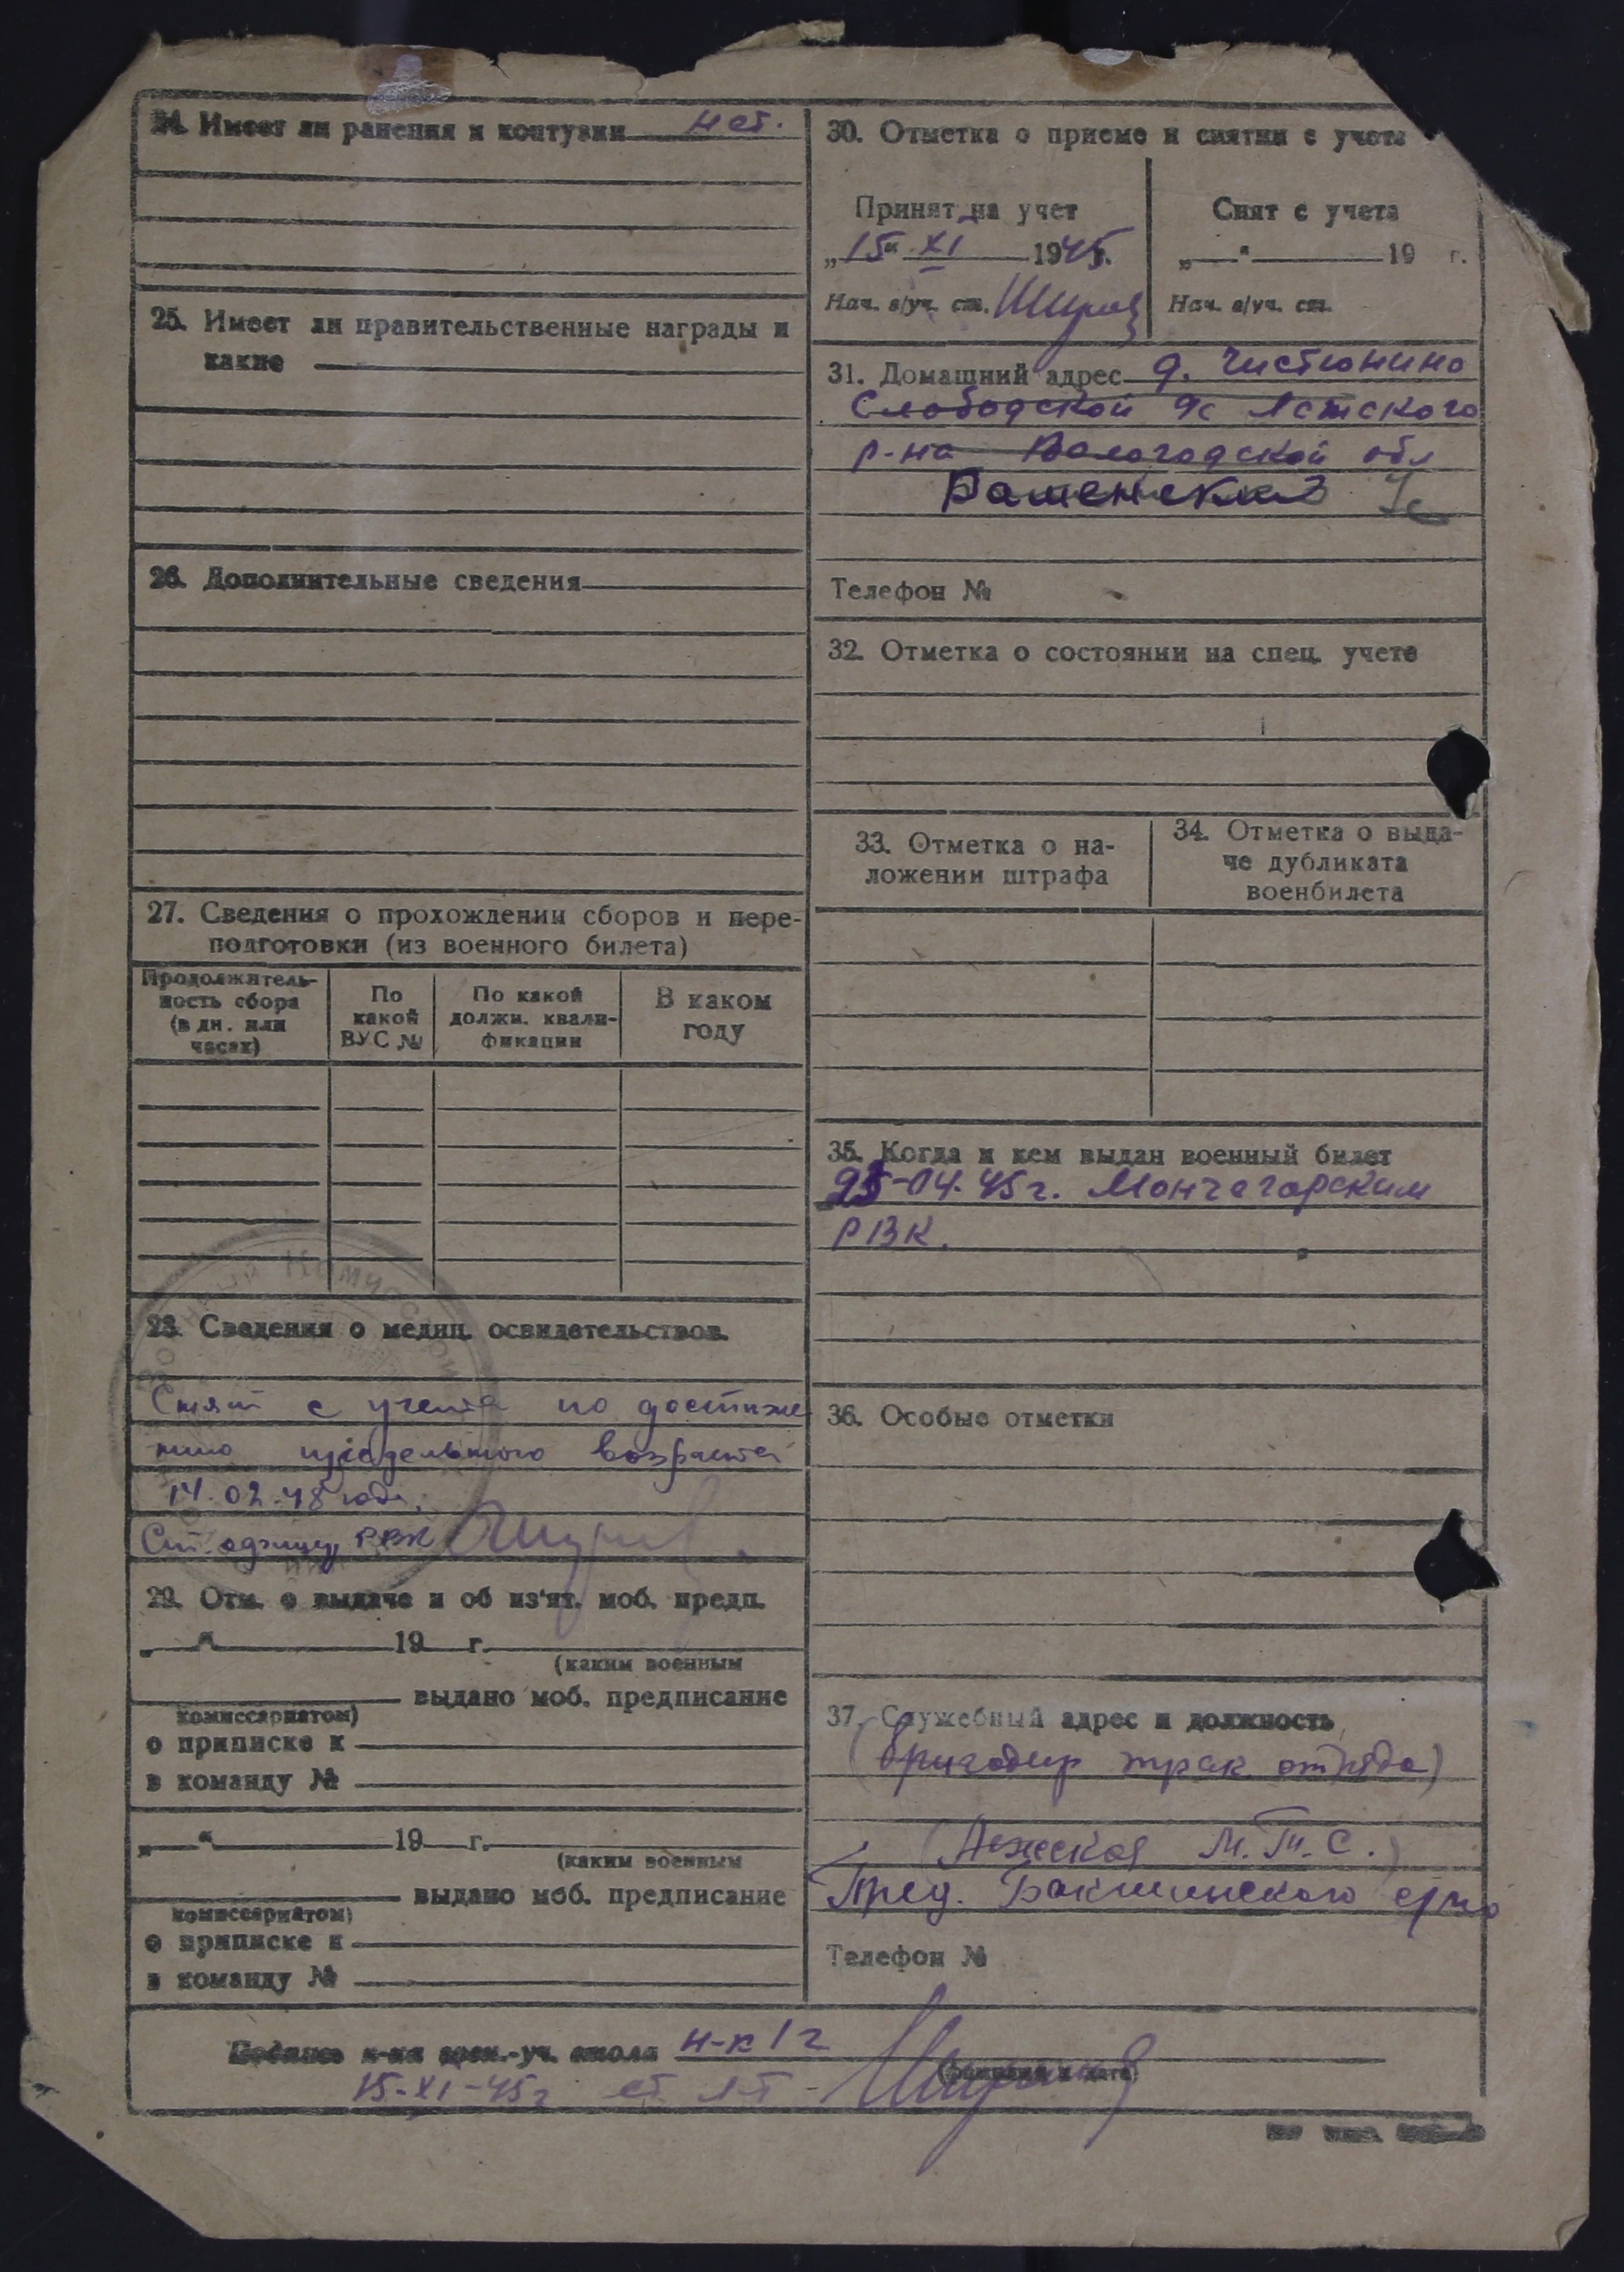 24. Имеет ли ранения и контузии нет.
25. Имеет ли правительственные награды и
какие
26. Дополнительные сведения
27. Сведения о прохождении сборов и пере-
подготовки (из военного билета)
Продолжитель-
ность сбора
(в дн. или
часах)
По
какой
ВУС №
По какой
должн. квали-
фикации
В каком
году
28. Сведения о медиц. освидетельствов.
Снят с учета по достиже
нию предельного возраста
14.02.48 года.
Ст. РВК
29. Отм. о выдаче и об из'ят. моб. предп.
„ “ 19 г.
(каким военным
выдано моб. предписание
комиссариатом)
о приписке к
в команду №
„ “ 19 г.
(каким военным
выдано моб. предписание
комиссариатом)
о приписке к
в команду №
30. Отметка о приеме и снятии с учета
Принят на учет
„15“ XI 1945г.
Нач. в/уч. ст.
Снят с учета
„ “ 19 г.
Нач. в/уч. ст.
31. Домашний адрес д.
Слободской с
р-на Вологодской обл
Телефон №
32. Отметка о состоянии на спец. учете
33. Отметка о на-
ложении штрафа
34. Отметка о выда-
че дубликата
военбилета
35. Когда и кем выдан военный билет
25-04.45г. Мончегорским
РВК.
36. Особые отметки
37. Служебный адрес и должность
(бригадир трак отряда)
М.Т.С.)
Пред.
Телефон №
Подпись н-ка воен.-уч. стола н-к 1 ч
(фамилия и дата)
15-XI-45г ст. л-т